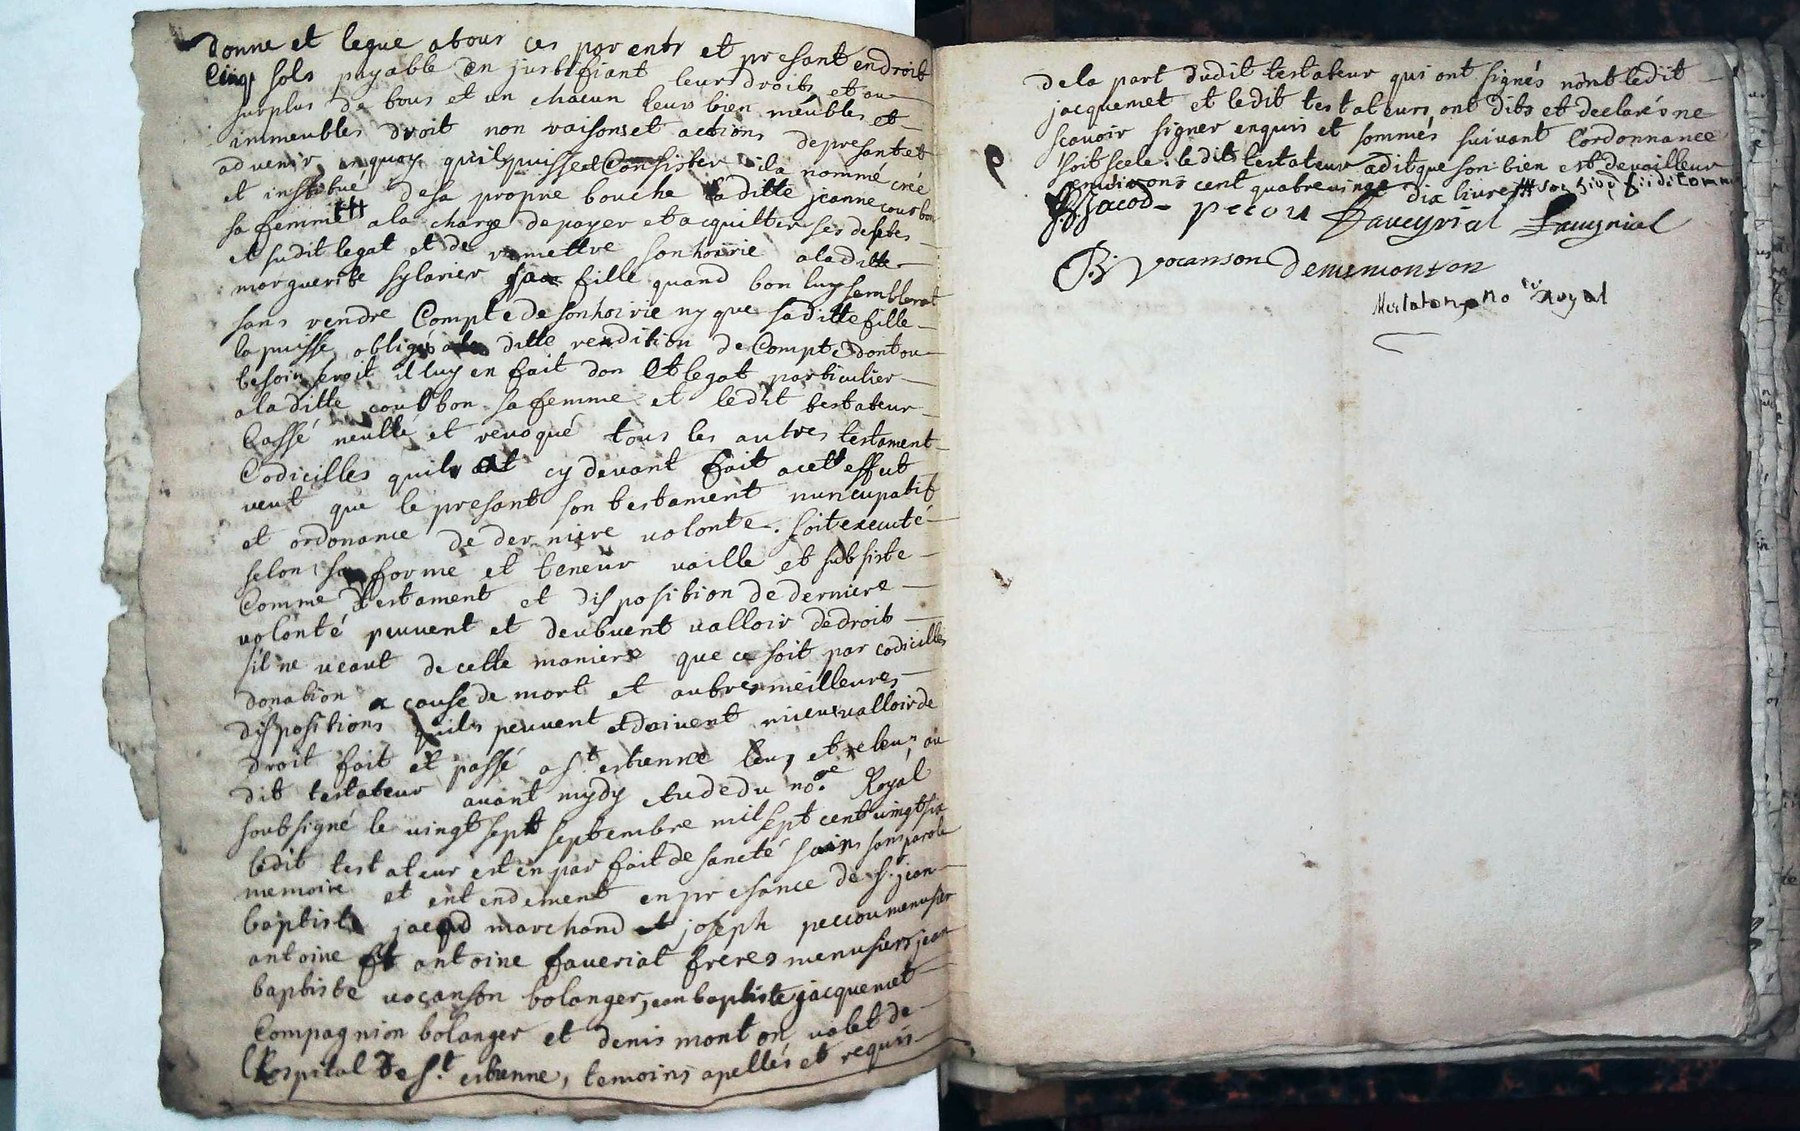 donne et legue atous ces parents et presant en droit
Cinq sols payable en justifiant leur droits et au
surplus de tous et un chacun leurs bien meubles et
immeubles droit non raisons et actions depresant et
advenir enquoy quilspuisse et Consister il a nommé créé
et institué desa propre bouche laditte jeanne courbon
sa femme ala charge depayer et acquitter ses debtes
et sudit legat et de remettre sonhoirie aladitte
marguerite sylarier saa fille quand bon luy semblerat
sans rendre Compte de sonhoirie ny que saditte fille
lapuisse obliger ala ditte rendition de Compte dont ou
besoin seroit il luy en fait don et legat particulier
aladitte courbon sa femme et ledit testateur
Cassé nulle et revoqué tous les autres testament
Codicilles quils at cy devant fait acett effect
veut que le presant son testament nuncupatif
et ordonance de derniere volonte soit executé
selon sa forme et teneur vaille et subsiste
Comme testament et disposition de derniere
volonté peuvent et deubvent valloir dedroit
sil ne veaut de cette maniere que ce soit par codicilles
donation a cause de mort et autres meilleures
dispositions quils peuvent et doivent mieux valloir de
droit fait et passé a St estienne leu et releu au
dit testateur avant mydy etude du no.re Royal
soubsigné le vingt sept septembre mil sept cent vingt six
ledit testateur est en parfait de sancté sains sans parole
memoire et entendement en presance de s.r jean
baptiste jacod marchand et joseph peccou menusier
antoine et antoine faveriat freres menusiers jean
baptiste vocanson bolanger, jean baptiste jacquemet
Compagnion bolanger et denis monton valet de
l'hospital de St estienne, temoins apellés et requis
dela part dudit testateur qui ont signés nont ledit
jacquemet et ledit testateurs ont dits et declarés ne
scavoir signer enquis et sommés suivant l'ordonnance
soit scele ledit testateur a dit que son bien est de valleur
environs cent quatre vingt dix livres
JBJacod peccou faveyriat faveyriat
B vocanson denis monton
no re Royal